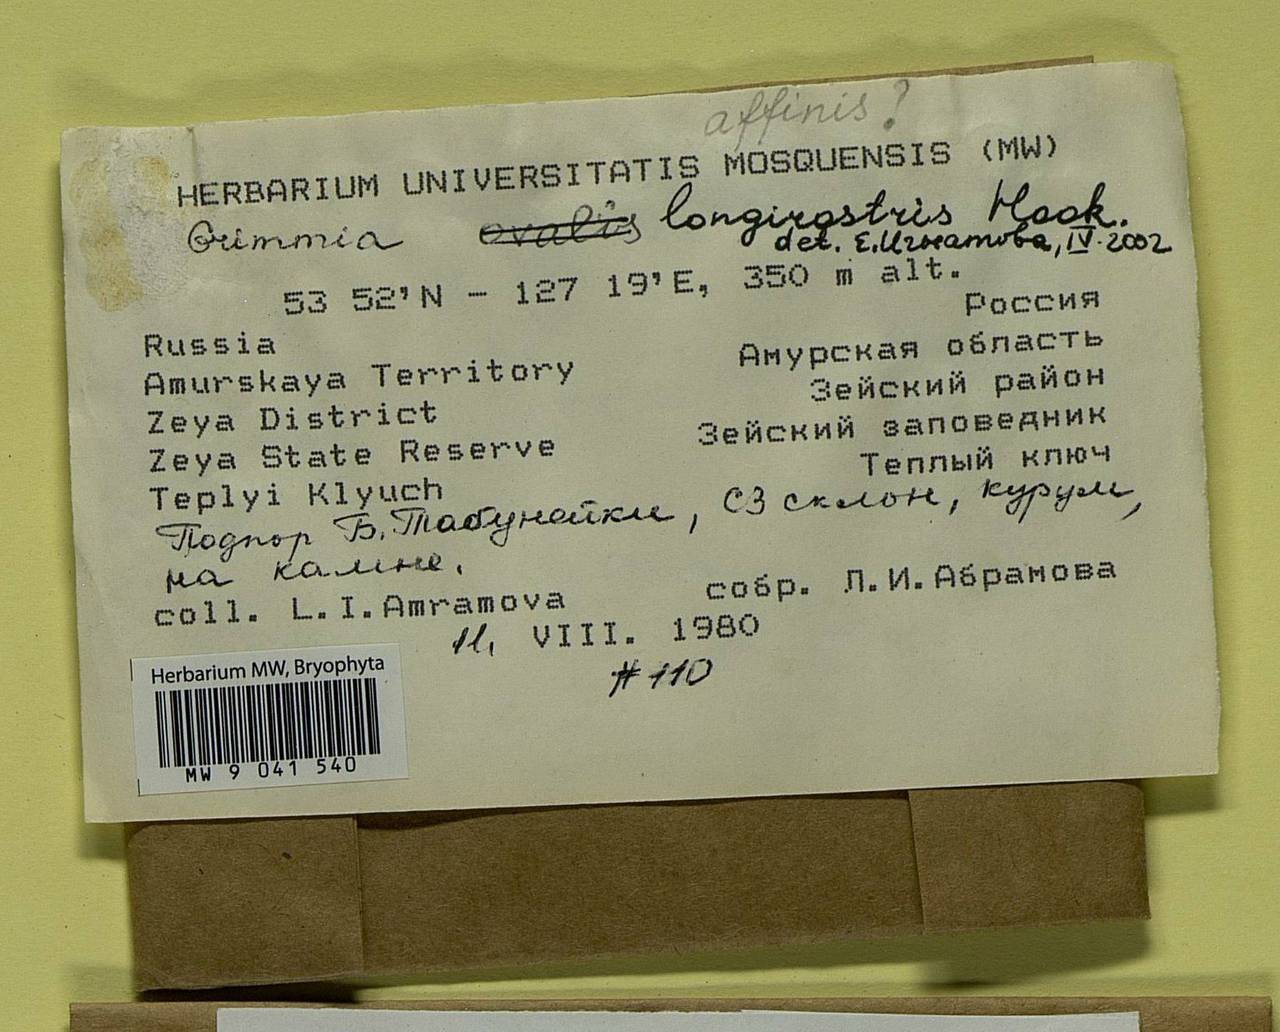 affinis?
HERBARIUM UNIVERSITATIS MOSQUENSIS (MW)
Grimmia ovalis longirostris Hook.
det. Е.Игнатова, IV.2002
53 52'N - 127 19'E, 350 m alt.
Russia Россия
Amurskaya Territory Амурская область
Zeya District Зейский район
Zeya State Reserve Зейский заповедник
Teplyi Klyuch Теплый ключ
Подпор Б.Табунайки, СЗ склон, курум,
на камне.
coll. L.I.Amramova собр. Л.И.Абрамова
11. VIII. 1980
#110
Herbarium MW, Bryophyta
MW 9 041 540